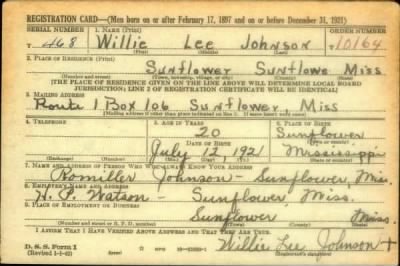 REGISTRATION CARD—(Men born on or after February 17, 1897 and on or before December 31, 1921)
SERIAL NUMBER 1. NAME (Print) ORDER NUMBER
T 468 Willie Lee Johnson T10164
(First) (Middle) (Last)
2. PLACE OF RESIDENCE (Print)
Sunflower Sunflowe Miss
(Number and street) (Town, township, village, or city) (County) (State)
[THE PLACE OF RESIDENCE GIVEN ON THE LINE ABOVE WILL DETERMINE LOCAL BOARD
JURISDICTION; LINE 2 OF REGISTRATION CERTIFICATE WILL BE IDENTICAL]
3. MAILING ADDRESS
Route 1 Box 106 Sunflower Miss
[Mailing address if other than place indicated on line 2. If same insert word same]
4. TELEPHONE 5. AGE IN YEARS 6. PLACE OF BIRTH
20 Sunflower
DATE OF BIRTH (Town or county)
July 12, 1921 Mississippi
(Exchange) (Number) (Mo.) (Day) (Yr.) (State or country)
7. NAME AND ADDRESS OF PERSON WHO WILL ALWAYS KNOW YOUR ADDRESS
Romiller Johnson - Sunflower, Miss.
8. EMPLOYER'S NAME AND ADDRESS
Watson - Sunflower, Miss.
9. PLACE OF EMPLOYMENT OR BUSINESS
Sunflower Miss.
(Number and street or R. F. D. number) (Town) (County) (State)
I AFFIRM THAT I HAVE VERIFIED ABOVE ANSWERS AND THAT THEY ARE TRUE.
D. S. S. Form 1 Willie Lee Johnson +
(Revised 1-1-42) (Registrant's signature)